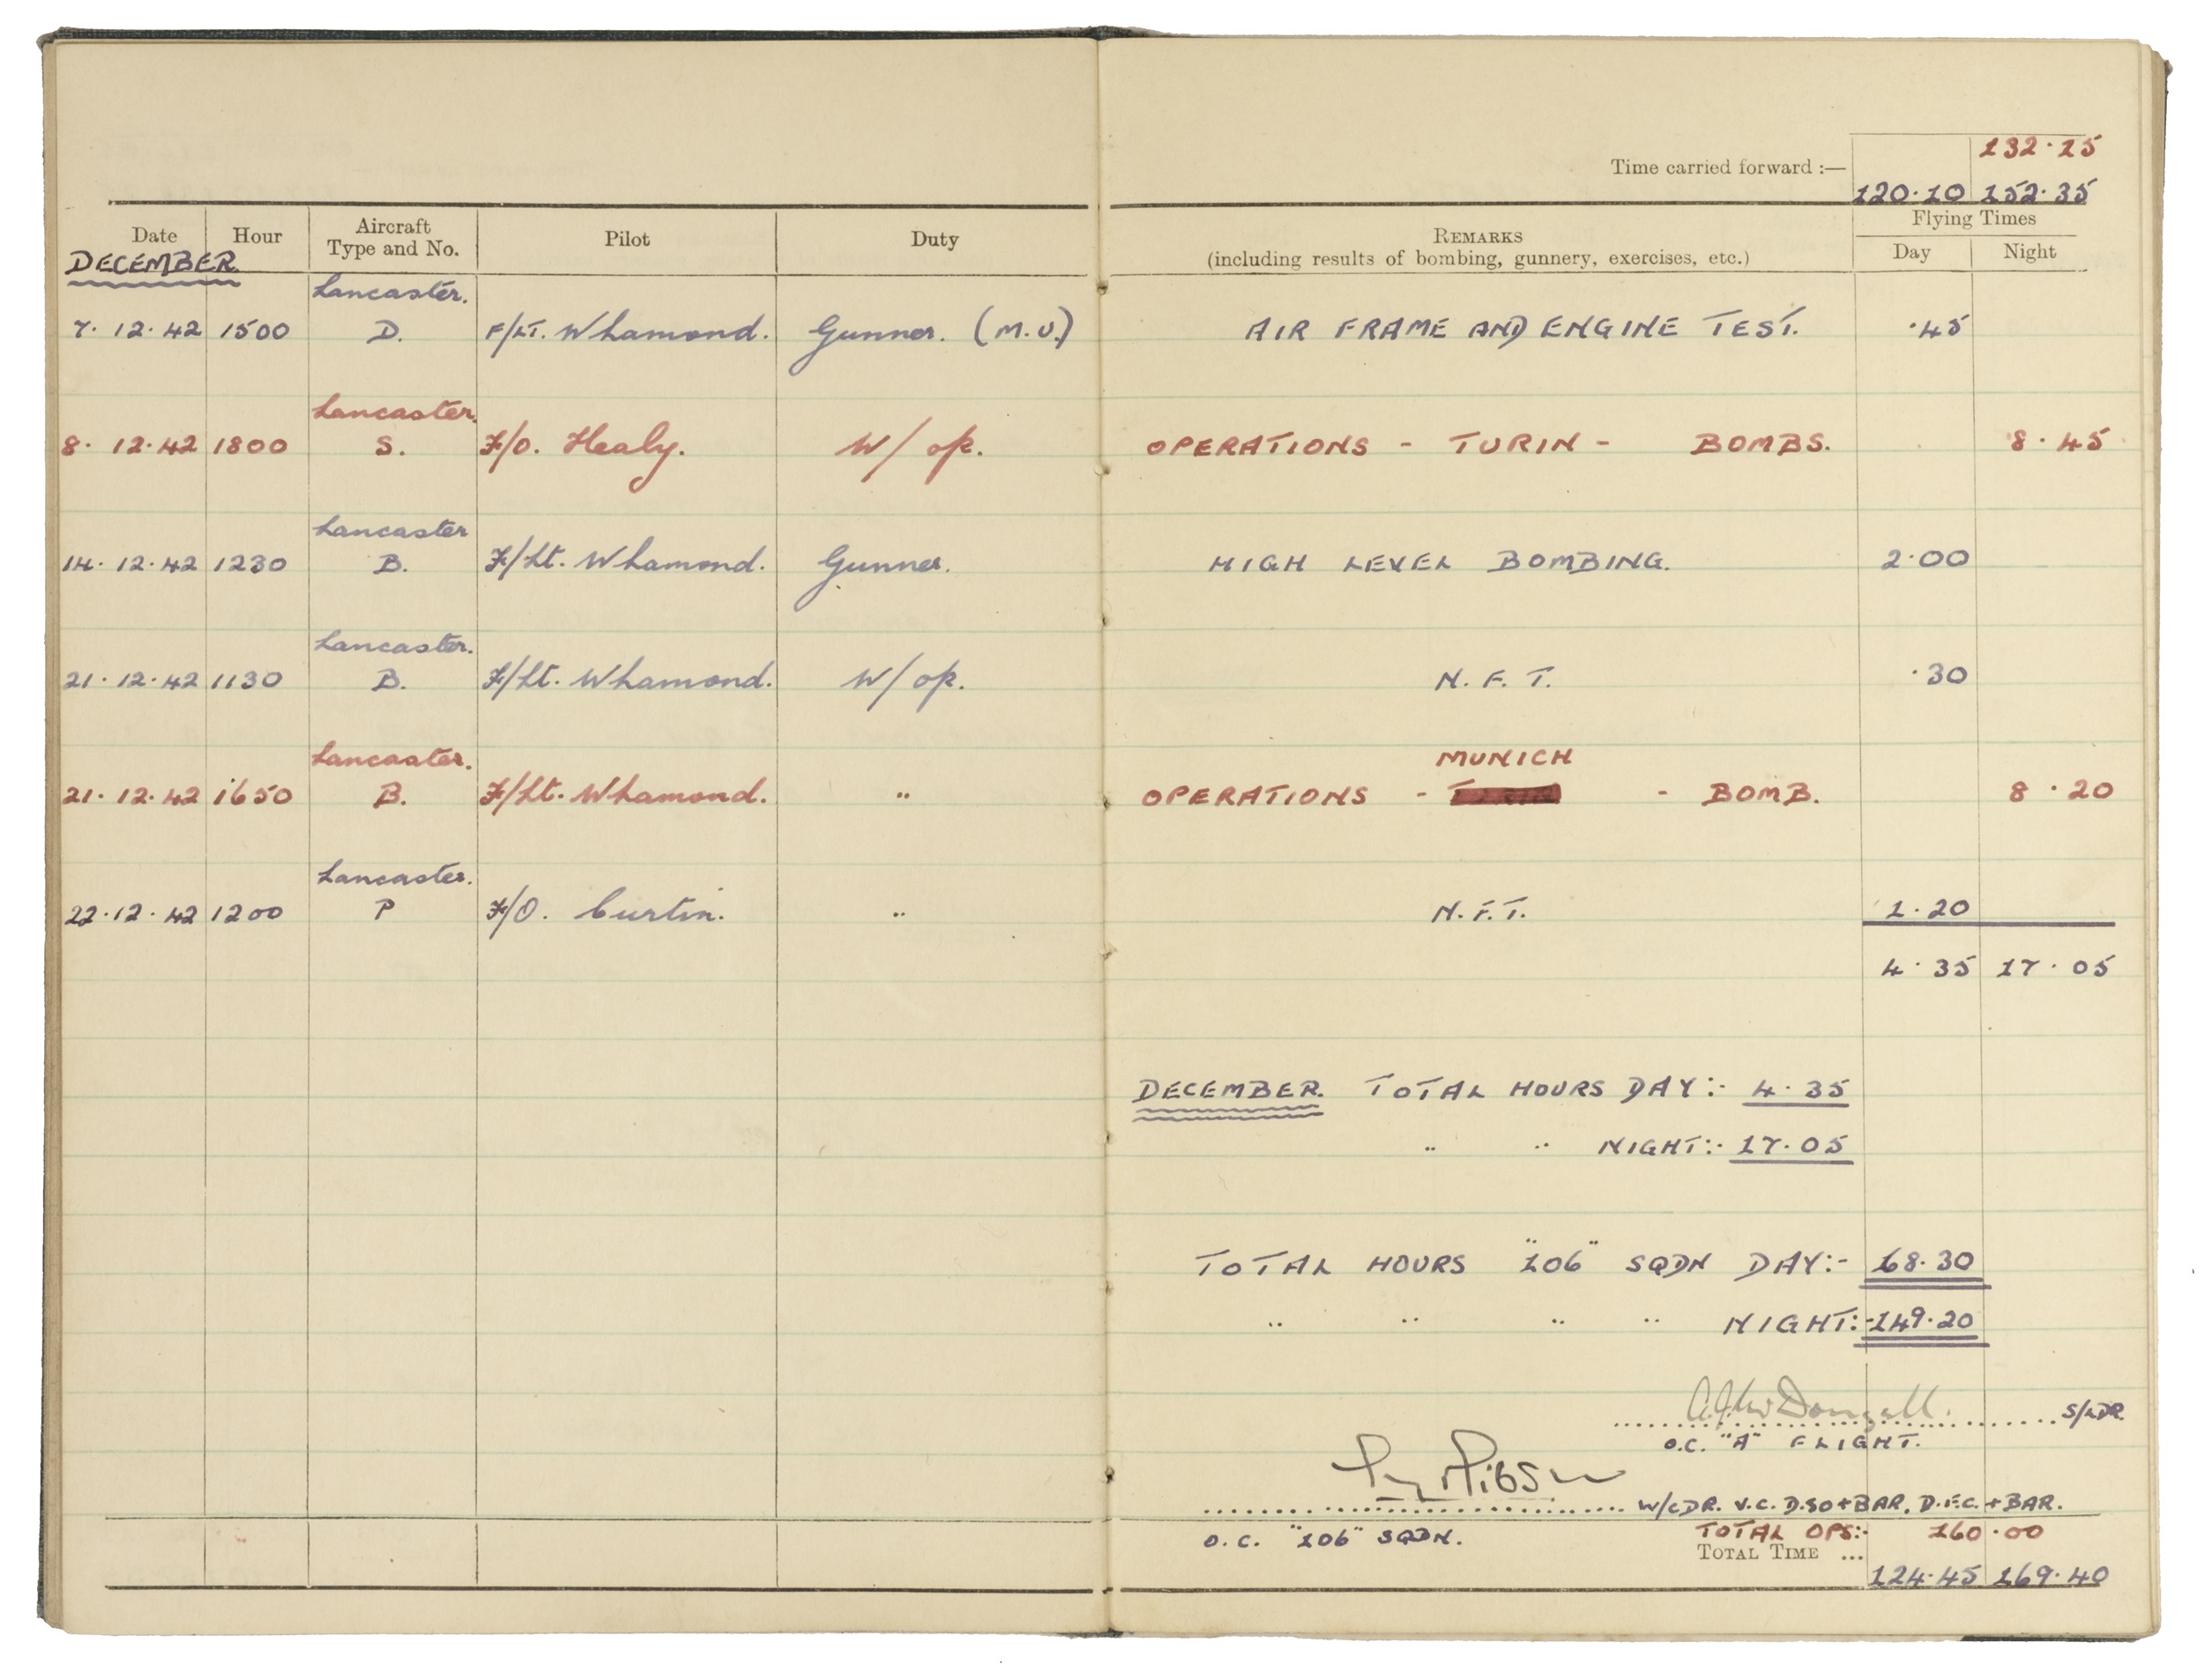 132.15
Time carried forward :—
120.10 152.35
Date Hour Aircraft Type and No. Pilot Duty REMARKS (including results of bombing, gunnery, exercises, etc.) Flying Times Day Night
DECEMBER
7. 12. 42 1500 Lancaster. D. F/LT. Whamond. Gunner. (M.U.) AIR FRAME AND ENGINE TEST. .45
8. 12.42 1800 Lancaster. S. F/O. Healy. W/op. OPERATIONS - TURIN - BOMBS. 8.45
14. 12.42 1230 Lancaster B. F/Lt. Whamond. Gunner. HIGH LEVEL BOMBING. 2.00
21. 12.42 1130 Lancaster. B. F/Lt. Whamond. W/op. N.F.T. .30
21. 12.42 1650 Lancaster. B. F/Lt. Whamond. " OPERATIONS - MUNICH - BOMB. 8.20
22.12.42 1200 Lancaster. P F/O. Curtin. " N.F.T. 1.20
4.35 17.05
DECEMBER. TOTAL HOURS DAY:- 4.35
" " NIGHT:- 17.05
TOTAL HOURS "106" SQDN DAY:- 68.30
" " " " NIGHT:- 149.20
S/LDR.
O.C. "A" FLIGHT.
Gibson W/CDR. V.C. D.SO+BAR. D.F.C.+BAR.
O.C. "106" SQDN. TOTAL OPS:- 160.00
TOTAL TIME ... 124.45 169.40